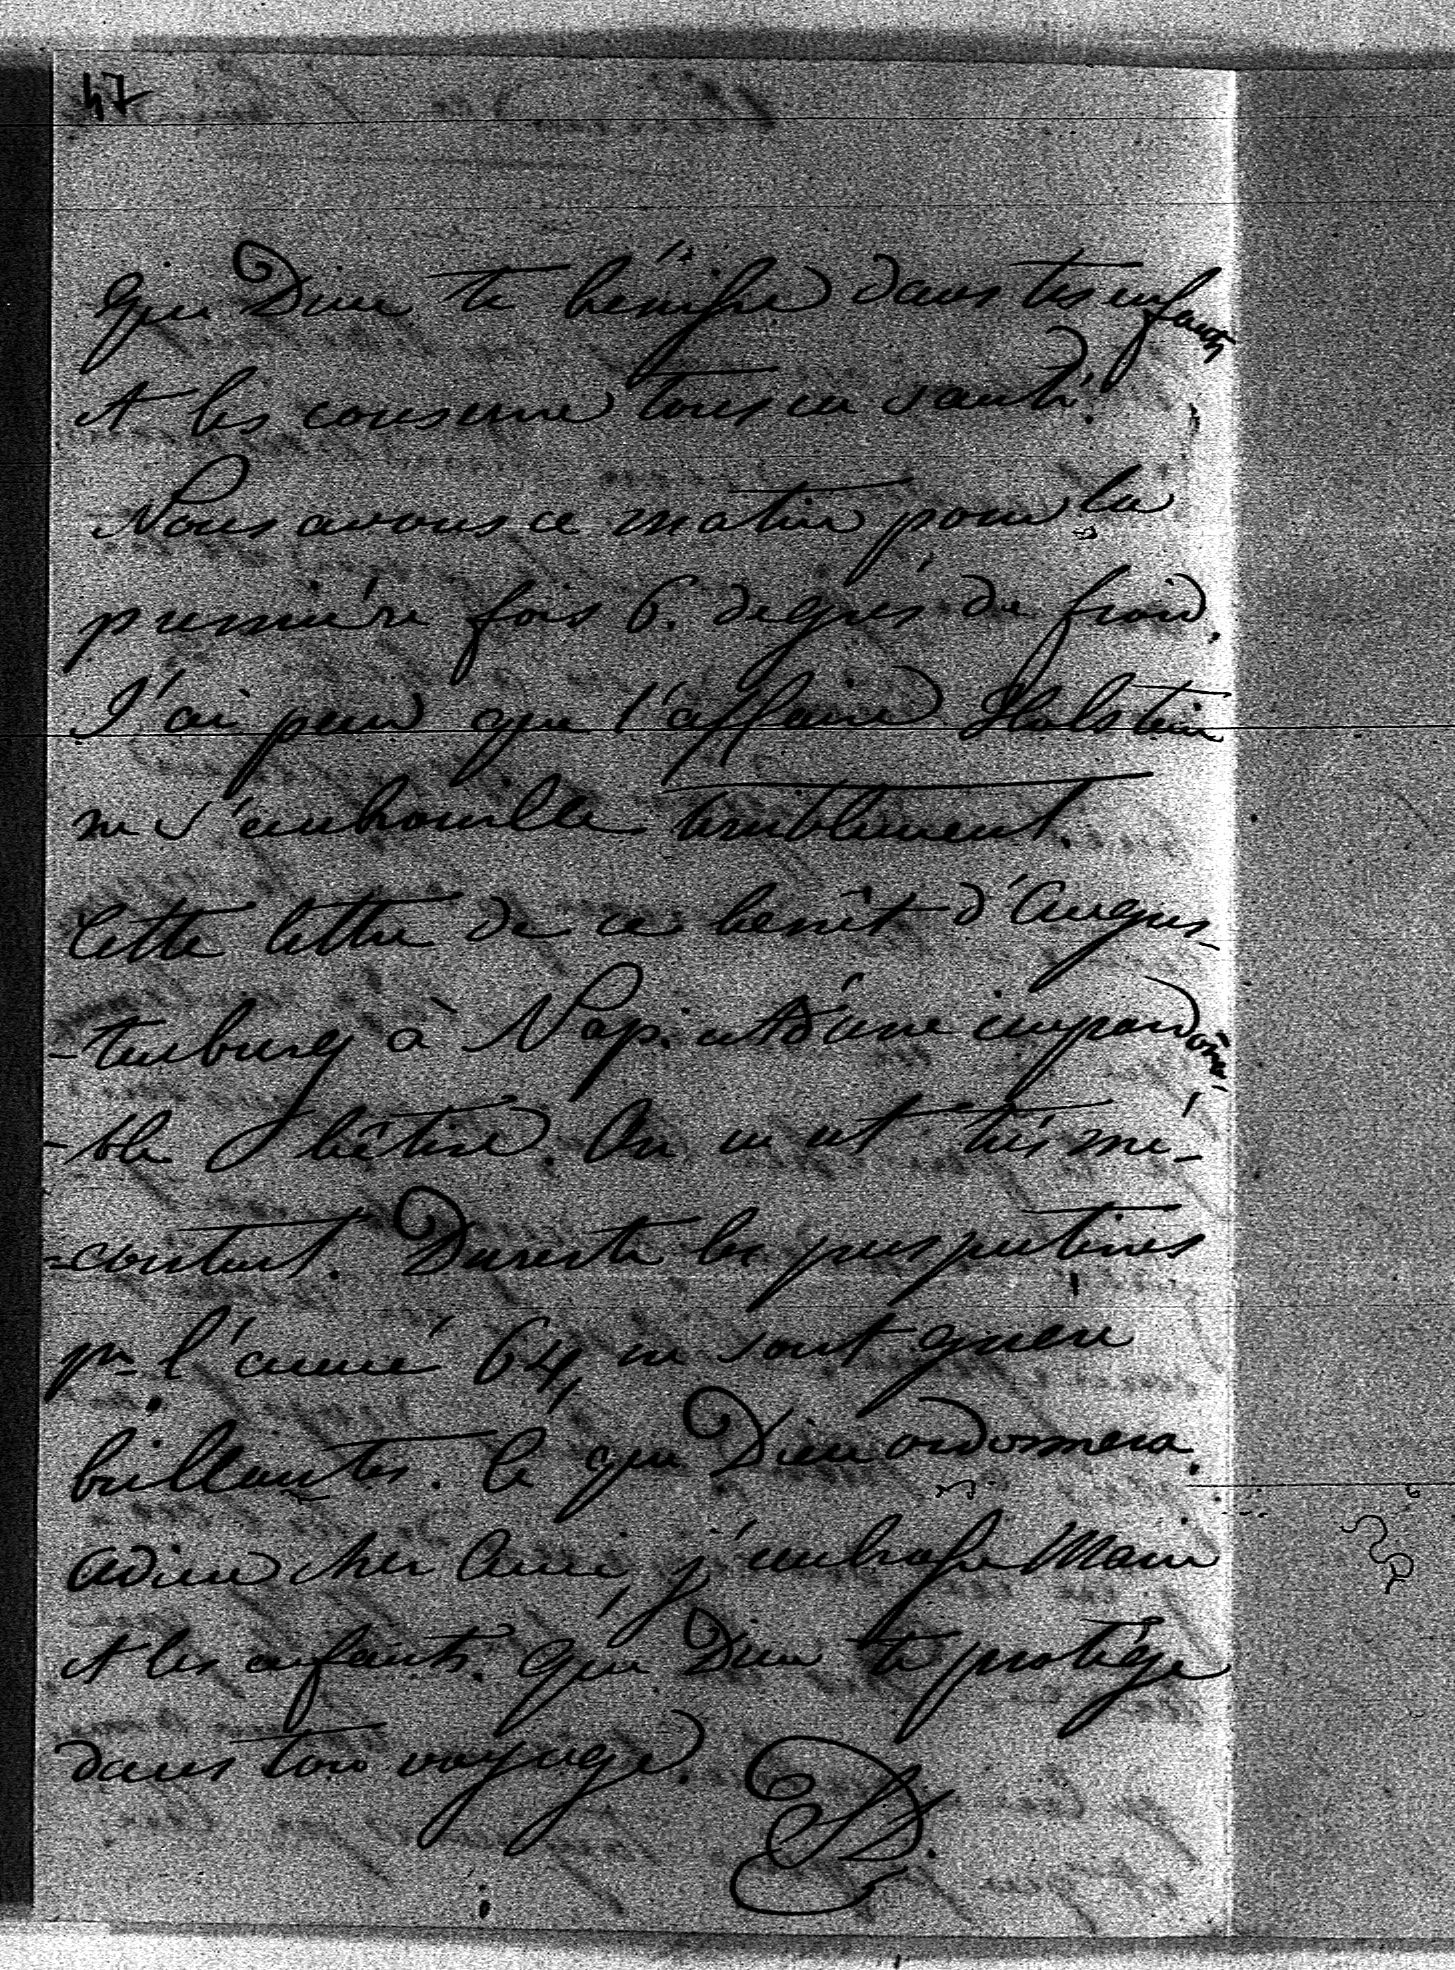 47
Que Dieu te bénisse dans tes enfans
et les conserve tous en santé.
Nous avons ce matin pour la
première fois 6. degrés de froid.
J'ai peur que l'affaire Holstein
ne s'embrouille terriblement.
Cette lettre de ce benêt d'Augus-
-tenburg à Nap. est d'une impardonna-
-ble bêtise. On en est très mé-
-contant. Du reste les perspectives
pr l'année 64, ne sont guère
brillantes. Ce que Dieu ordonnera.
Adieu cher Ami, j'embrasse Marie
et les enfants. Que Dieu te protège
dans ton voyage.